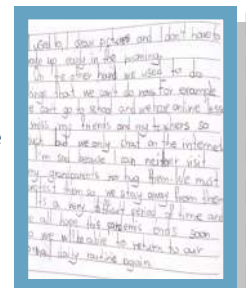 used to draw pictures and I don't have to
wake up early in the morning.
On the other hand we used to do
things that we can't do now for example
we can't go to school and we have online
I miss my friends and my teachers so
much but we only chat on the internet
I'm sad because I can neither visit
my grandparents nor hug them. We must
protect them so we stay away from them
It's a very difficult period of time and
we all hope this ends soon
so we will be able to return to our
daily routine again.